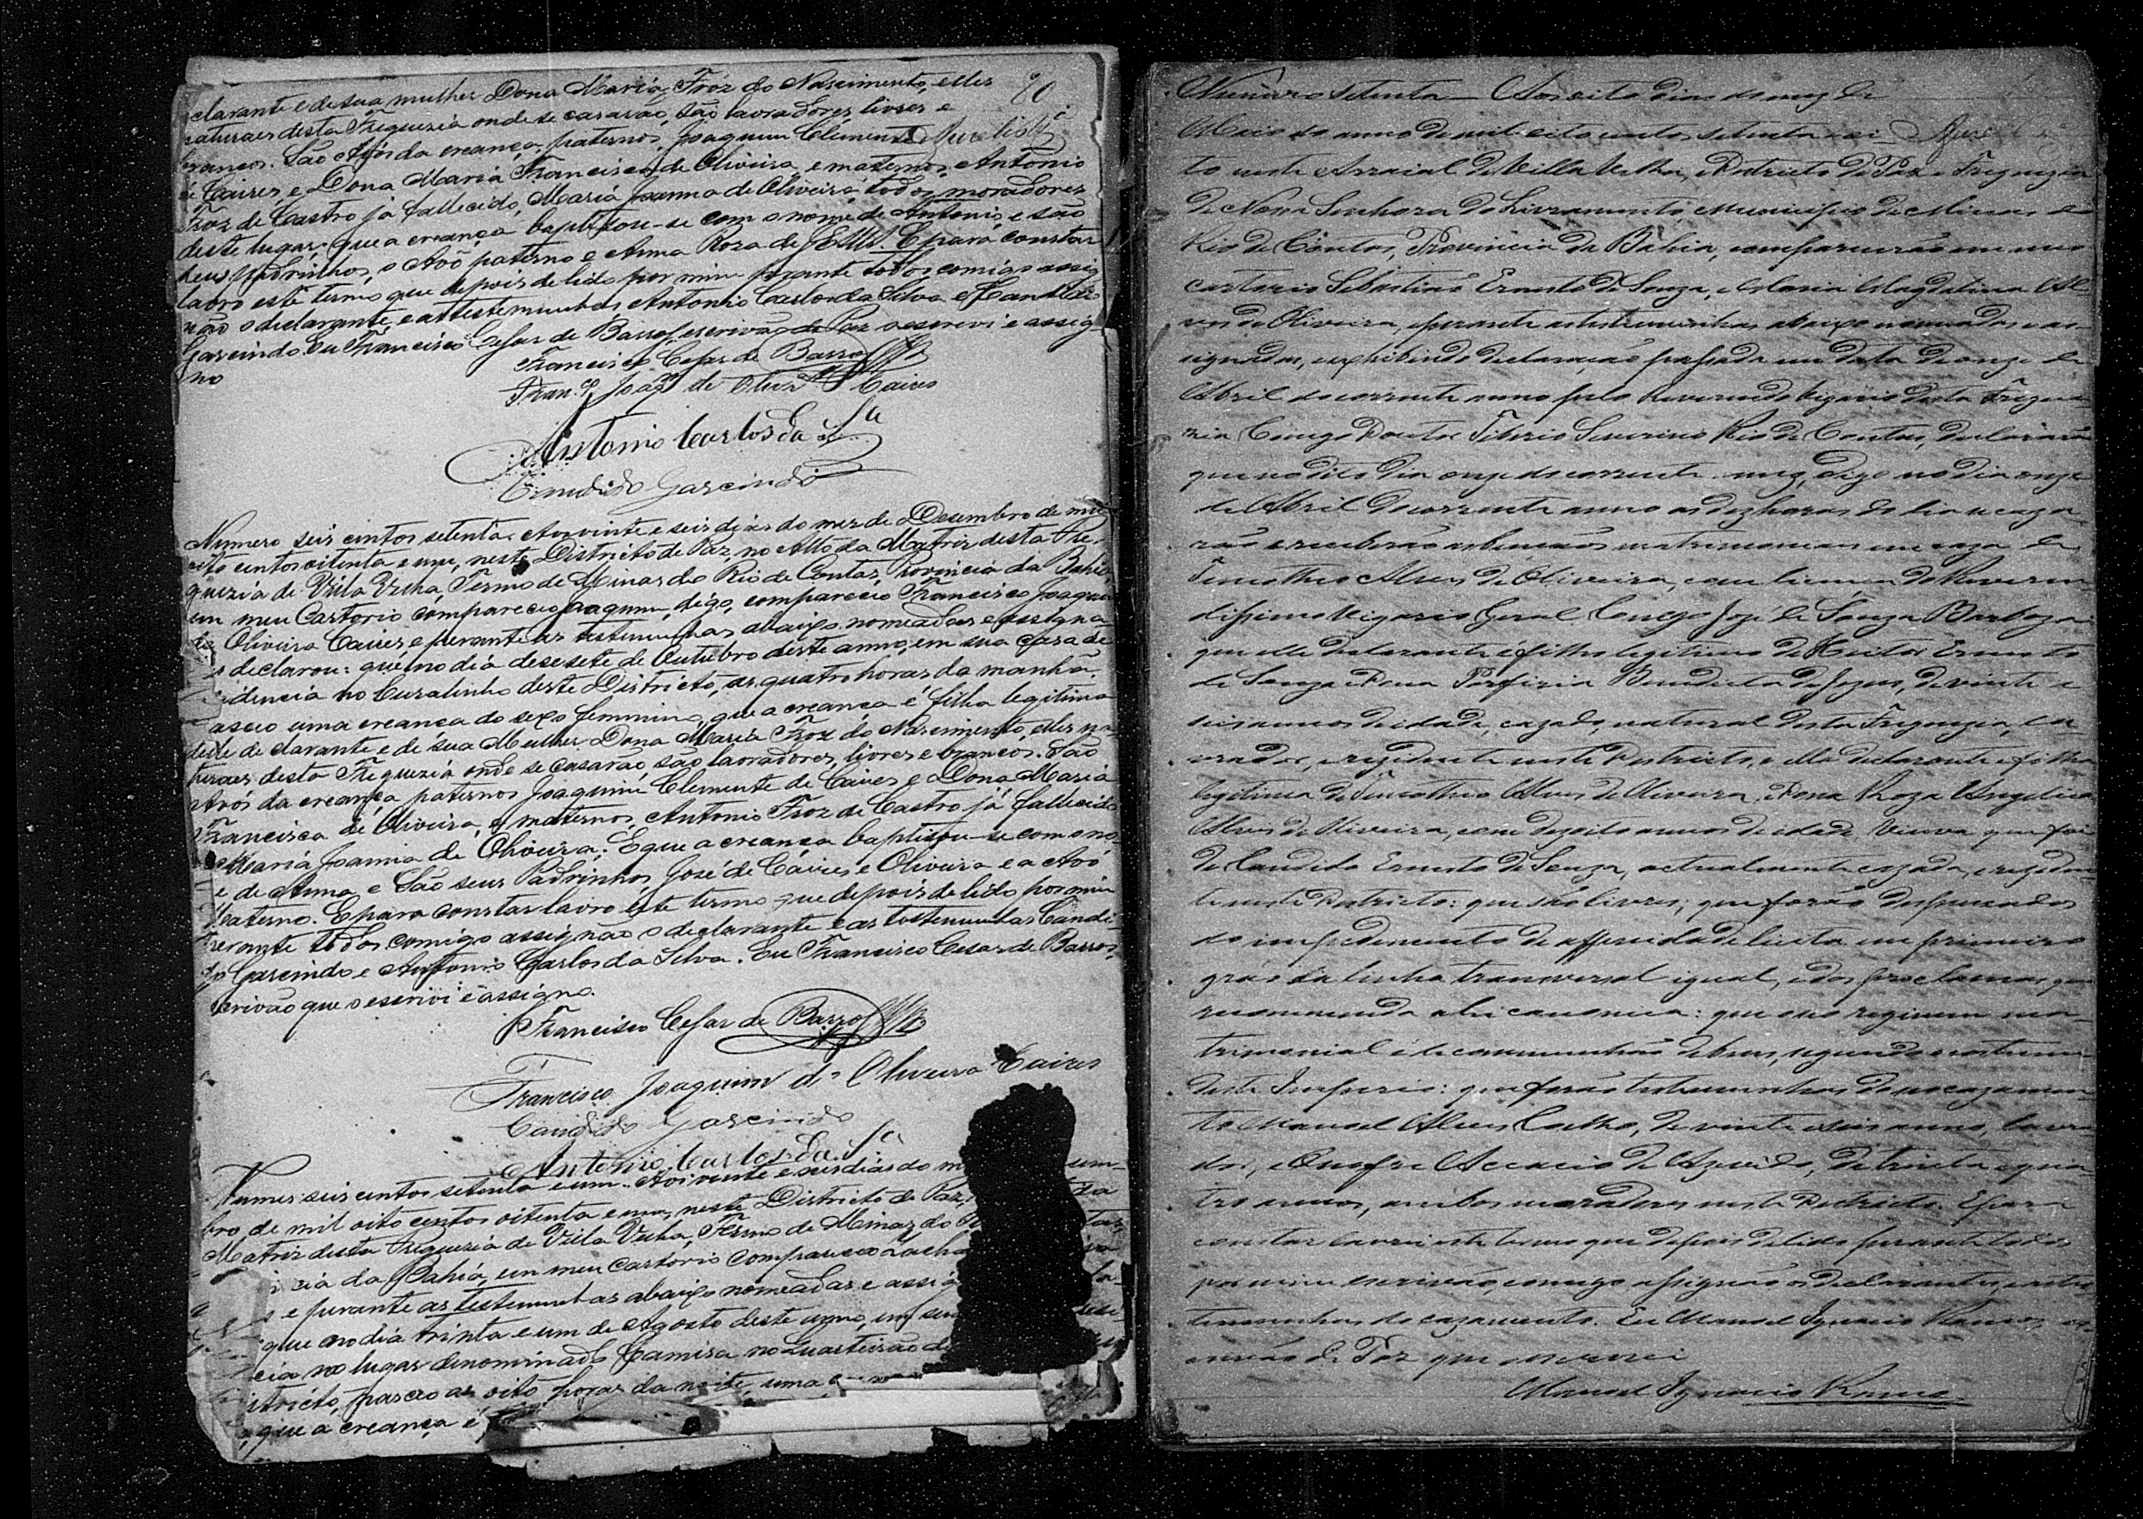 clarante e de sua mulher Dona Maria Froz do Nascimento, elles
naturaes desta Freguezia onde se casarão, são lavradores, livres e
brancos. São Avós da creança, paternos, Joaquim Clemente
de Caires, e Dona Maria Francisca de Oliveira, e maternos, Antonio
Froz de Castro já fallecido, Maria Joanna de Oliveira todos moradores
deste lugar; que a creança baptisou-se com o nome de Antonio, e são
seus Padrinhos, o Avô paterno e Anna Roza de Jesus. E para constar
lavro este termo que depois de lido por mim perante todos comigo assig
não o declarante, e as testemunhas Antonio Carlos da Silva e Candido
Garcindo. Eu Francisco Cesar de Barros, escrivão de Paz o escrevi e assig
no
80
Francisco Cesar de Barros
Fran.co Joaq.m de Olivr.a Caires
Antonio Carlos da S.a
Candido Garcindo
Numero seis centos setenta. Aos vinte e seis dias do mez de Desembro de mil
oito centos oitenta e um, neste Districto de Paz, no Alto da Matriz desta Fre
guezia de Villa Velha, Termo de Minas do Rio de Contas, Provincia da Bahia,
em meu Cartorio compareceo Joaquim, digo, compareceo Francisco Joaquim
de Oliveira Caires, e perante as testemunhas abaixo nomeadas e assigna
declarou: que no dia desesete de Outubro deste anno, em sua casa de
residencia no Curalinho deste Districto, as quatro horas da manhã,
nasceo uma creança do sexo feminino, que a creança é filha legitima
delle declarante e de sua Mulher Dona Maria Froz do Nascimento, elles na
turaes desta Freguezia onde se casarão são lavradores, livres e brancos. São
Avós da creança, paternos Joaquim Clemente de Caires e Dona Maria
Francisca de Oliveira, e maternos Antonio Froz de Castro já fallecido
e Maria Joanna de Oliveira: E que a creança baptisou-se com o no
me de Anna, e São seus Padrinhos José de Caires e Oliveira e a Avó
Paterna. E para constar lavro este termo que depois de lido por mim
perante todos comigo assignão o declarante e as testemunhas Candi
do Garcindo e Antonio Carlos da Silva. Eu Francisco Cesar de Barros,
escrivão que o escrevi e assigno.
Francisco Cesar de Barros
Francisco Joaquim de Oliveira Caires
Candido Garcindo
Antonio Carlos da S.a
Numer seis centos setenta e um. Aos vinte e seis dias do m
bro de mil oito centos oitenta e um, neste Districto de Paz,
Matriz desta Freguezia de Villa Velha, Termo de Minas do
cia da Bahia, em meu Cartorio compareceo
e perante as testemunhas abaixo nomeadas e assig
que no dia trinta e um de Agosto deste anno, em sua
cia no lugar denominado Camisa no Quarteirão d
stricto, nasceo as oito horas da noite, uma
que a creança é
Numero setenta Aos oito dias do mez de
Maio do anno de mil oito centos setenta e oi
to neste Arraial de Villa Velha, Districto de Paz e Freguezia
de Nossa Senhora do Livramento, Municipio de Minas do
Rio de Contas, Provincia da Bahia, comparecerão em meu
cartorio Sebastião Ernesto de Souza, e Maria Magdalena Al
ves de Oliveira, e perante as testemunhas abaixo nomeadas e as
signadas, exhibindo declaração passada em data de onze de
Abril do corrente anno pelo Reverendo Vigario desta Fregue
zia Conego Doutor Tiberio Severino Rio de Contas, declararão
que no dito dia onze do corrente mez, digo no dia onze
de Abril do corrente anno as dez horas do dia se caza
rão e receberão as bençãos matrimoniaes em caza de
Timotheo Alves de Oliveira, com licença do Reveren
dissimo Vigario Geral Conego José de Souza Barboza
que elle declarante é filho legitimo de Heitor Ernesto
de Souza e Dona Porfiria Benedicta de Jezus, de vinte e
seis annos de idade, cazado, natural desta Freguezia, la
vrador, e rezidente neste Districto, e ella declarante é filha
legitima de Timotheo Alves de Oliveira, e Dona Roza Angelica
Alves de Oliveira, com dezoito annos de idade Viuva que foi
de Candido Ernesto de Souza, actualmente cazada, e reziden
te neste Districto: que são livres; que forão dispensados
do impedimento de affinidade licita em primeiro
gráo da linha transversal igual, e dos proclamas que
recommenda a lei canonica: que seu regimem ma
trimonial é de communhão de bens, segundo o costume
deste Imperio: que forão testemunhas do seu cazamen
to Manoel Alves Coelho, de vinte e seis annos, lavra
dor, e Onofre Accacio de Azevedo, de trinta e qua
tro annos, ambos moradores neste Districto. E para
constar lavrei este termo que depois de lido perante todos
por mim escrivão, comigo assignão os declarantes, e as tes
temunhas do cazamento. Eu Manoel Ignacio Ramos es
crivão de Paz que escrevi
Manoel Ignacio Ramos